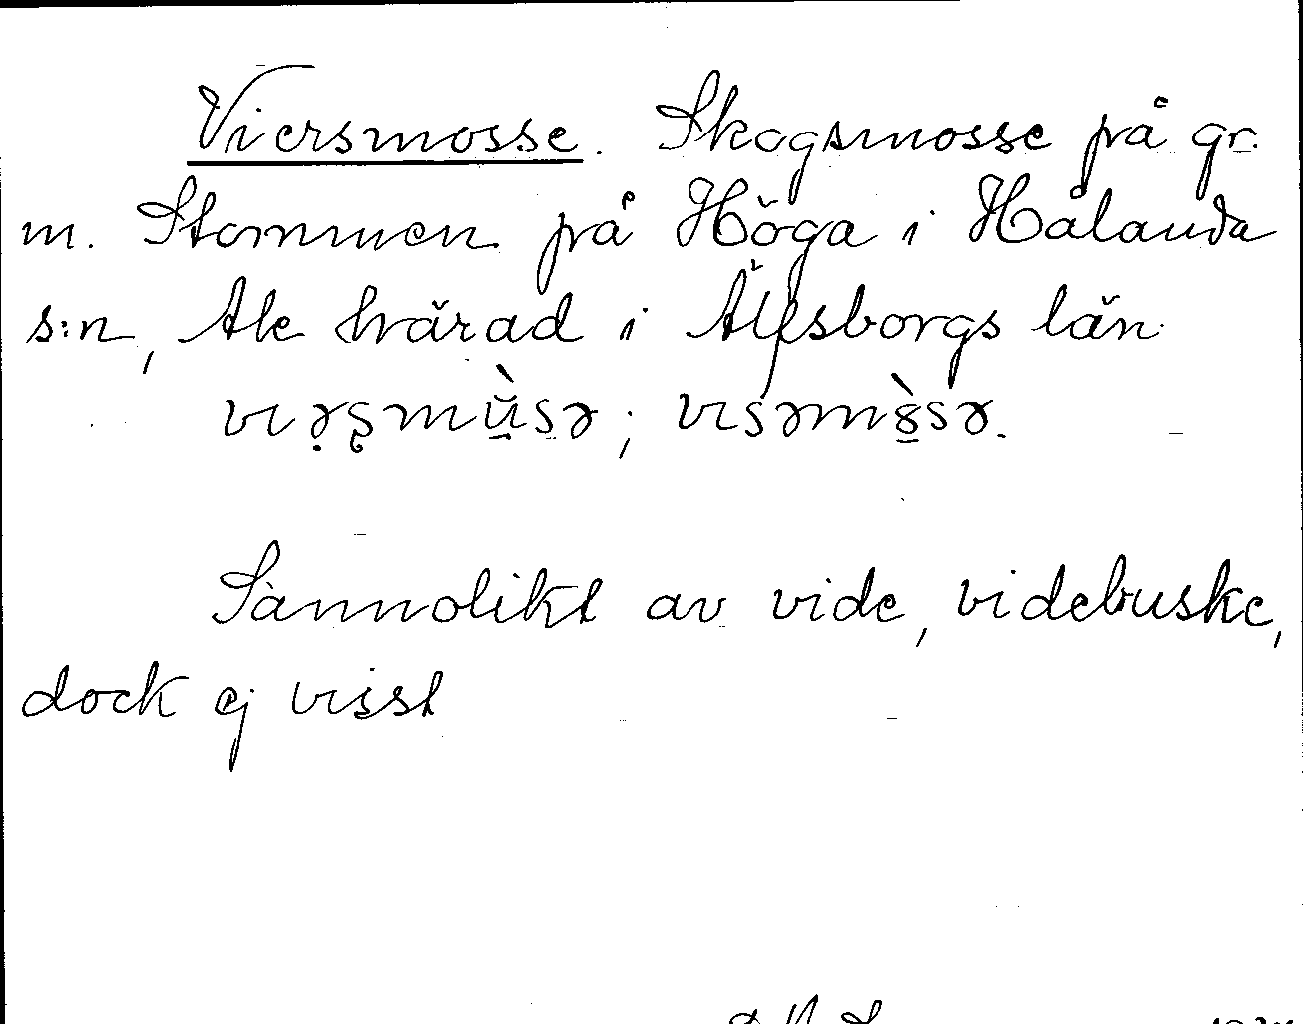 Viersmosse. Skogsmosse på gr.
m. Stommen på Höga i Hålanda
s:n, Ale härad i Älfsborgs län
Sannolikt av vide, videbuske,
dock ej visst